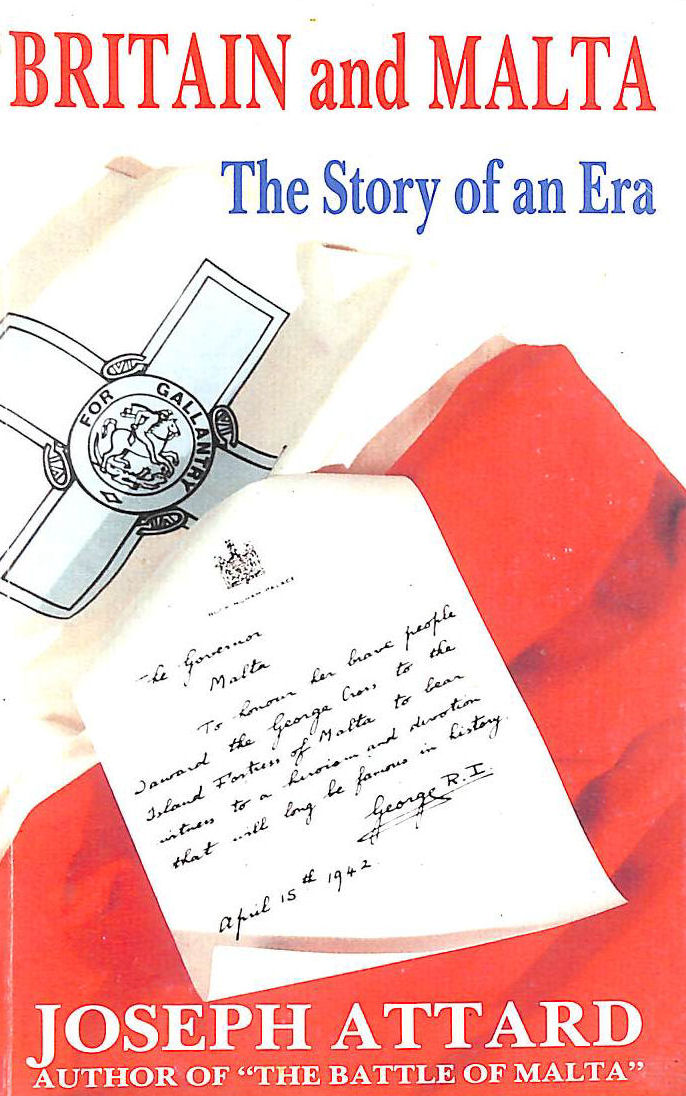 BRITAIN and MALTA
The Story of an Era
FOR GALLANTRY
BUCKINGHAM PALACE
The Governor
Malta
To honour her brave people
I award the George Cross to the
Island Fortress of Malta to bear
witness to a heroism and devotion
that will long be famous in history.
George R.I.
April 15th 1942
JOSEPH ATTARD
AUTHOR OF "THE BATTLE OF MALTA"